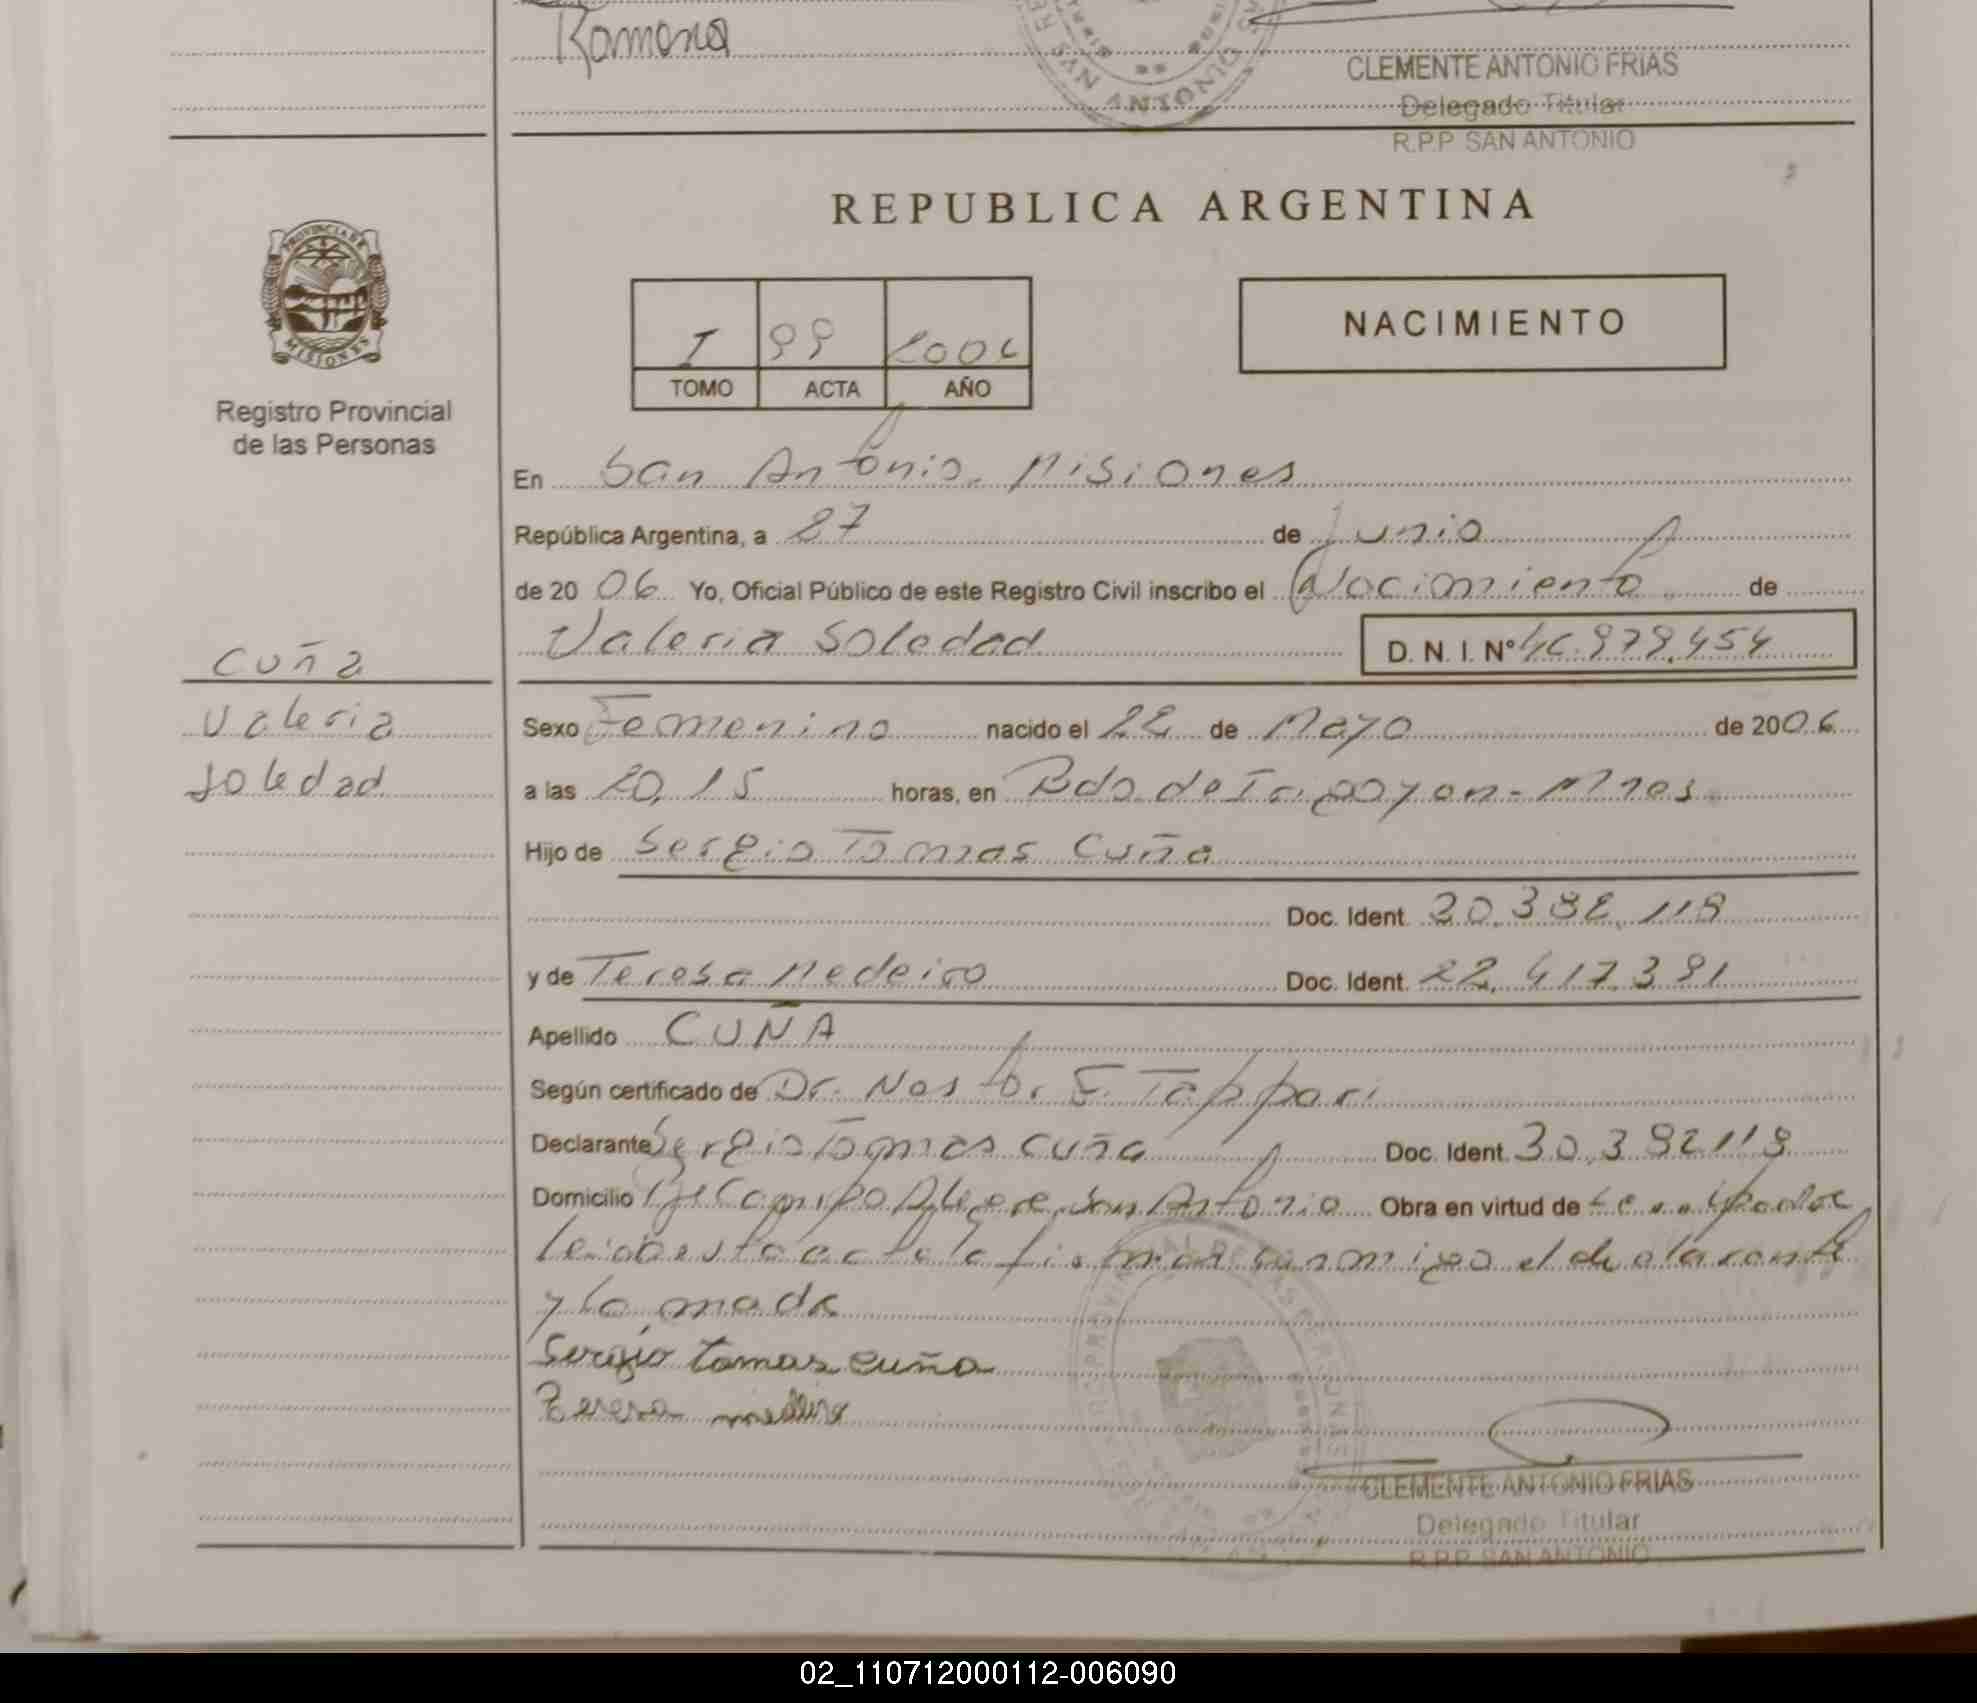 Ramona
CLEMENTE ANTONIO FRIAS
Delegado Titular
R.P.P. SAN ANTONIO
SAN ANTONIO
REPUBLICA ARGENTINA
PROVINCIA DE
MISIONES
Registro Provincial
de las Personas
I 99 2006
TOMO ACTA AÑO
NACIMIENTO
En San Antonio. Misiones
República Argentina, a 27 de Junio
de 2006 Yo, Oficial Público de este Registro Civil inscribo el Nacimiento de
Valeria Soledad D. N. I. Nº
Cuña
Valeria
Soledad
Sexo Femenino nacido el 22 de Mayo de 2006
a las 20,15 horas, en Bdo de Irigoyen - Mnes
Hijo de Sergio Tomas Cuña
Doc. Ident.
y de Teresa Medeiro Doc. Ident. 22.417.381
Apellido CUÑA
Según certificado de Dr.
Declarante Sergio Tomas Cuña Doc. Ident.
Domicilio Campo Alegre, San Antonio Obra en virtud de
Leida esta acta la firman conmigo el declarante
y la madre
Sergio tomas cuña
Teresa
CLEMENTE ANTONIO FRIAS
Delegado Titular
R.P.P. SAN ANTONIO
02_110712000112-006090